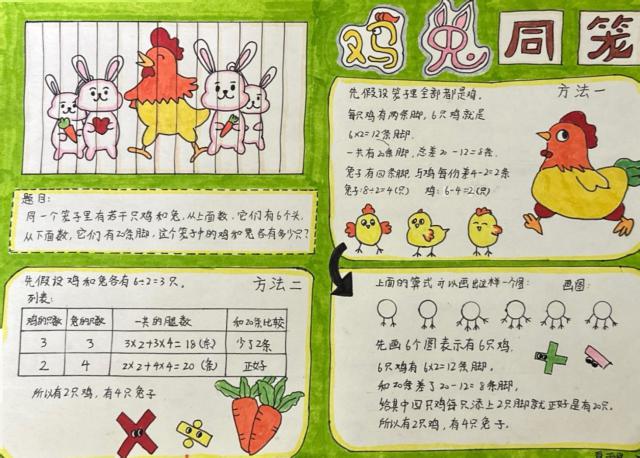 鸡兔同笼
题目:
同一个笼子里有若干只鸡和兔,从上面数,它们有6个头,
从下面数,它们有20条脚,这个笼子中的鸡和兔各有多少只?
方法一
先假设笼子里全部都是鸡。
每只鸡有两条脚,6只鸡就是
6×2=12条脚.
一共有20条脚,总差20-12=8条.
兔子有四条脚,与鸡每份差4-2=2条
兔子:8÷2=4(只) 鸡:6-4=2(只)
方法二
先假设鸡和兔各有6÷2=3只.
列表:
鸡的只数 兔的只数 一共的腿数 和20条比较
3 3 3×2+3×4=18(条) 少了2条
2 4 2×2+4×4=20(条) 正好
所以有2只鸡,有4只兔子.
上面的算式可以画出这样一个图: 画图:
先画6个图表示有6只鸡.
6只鸡有6×2=12条脚.
和20条差了20-12=8条脚,
给其中四只鸡每只添上2只脚就正好是有20只.
所以有2只鸡,有4只兔子.